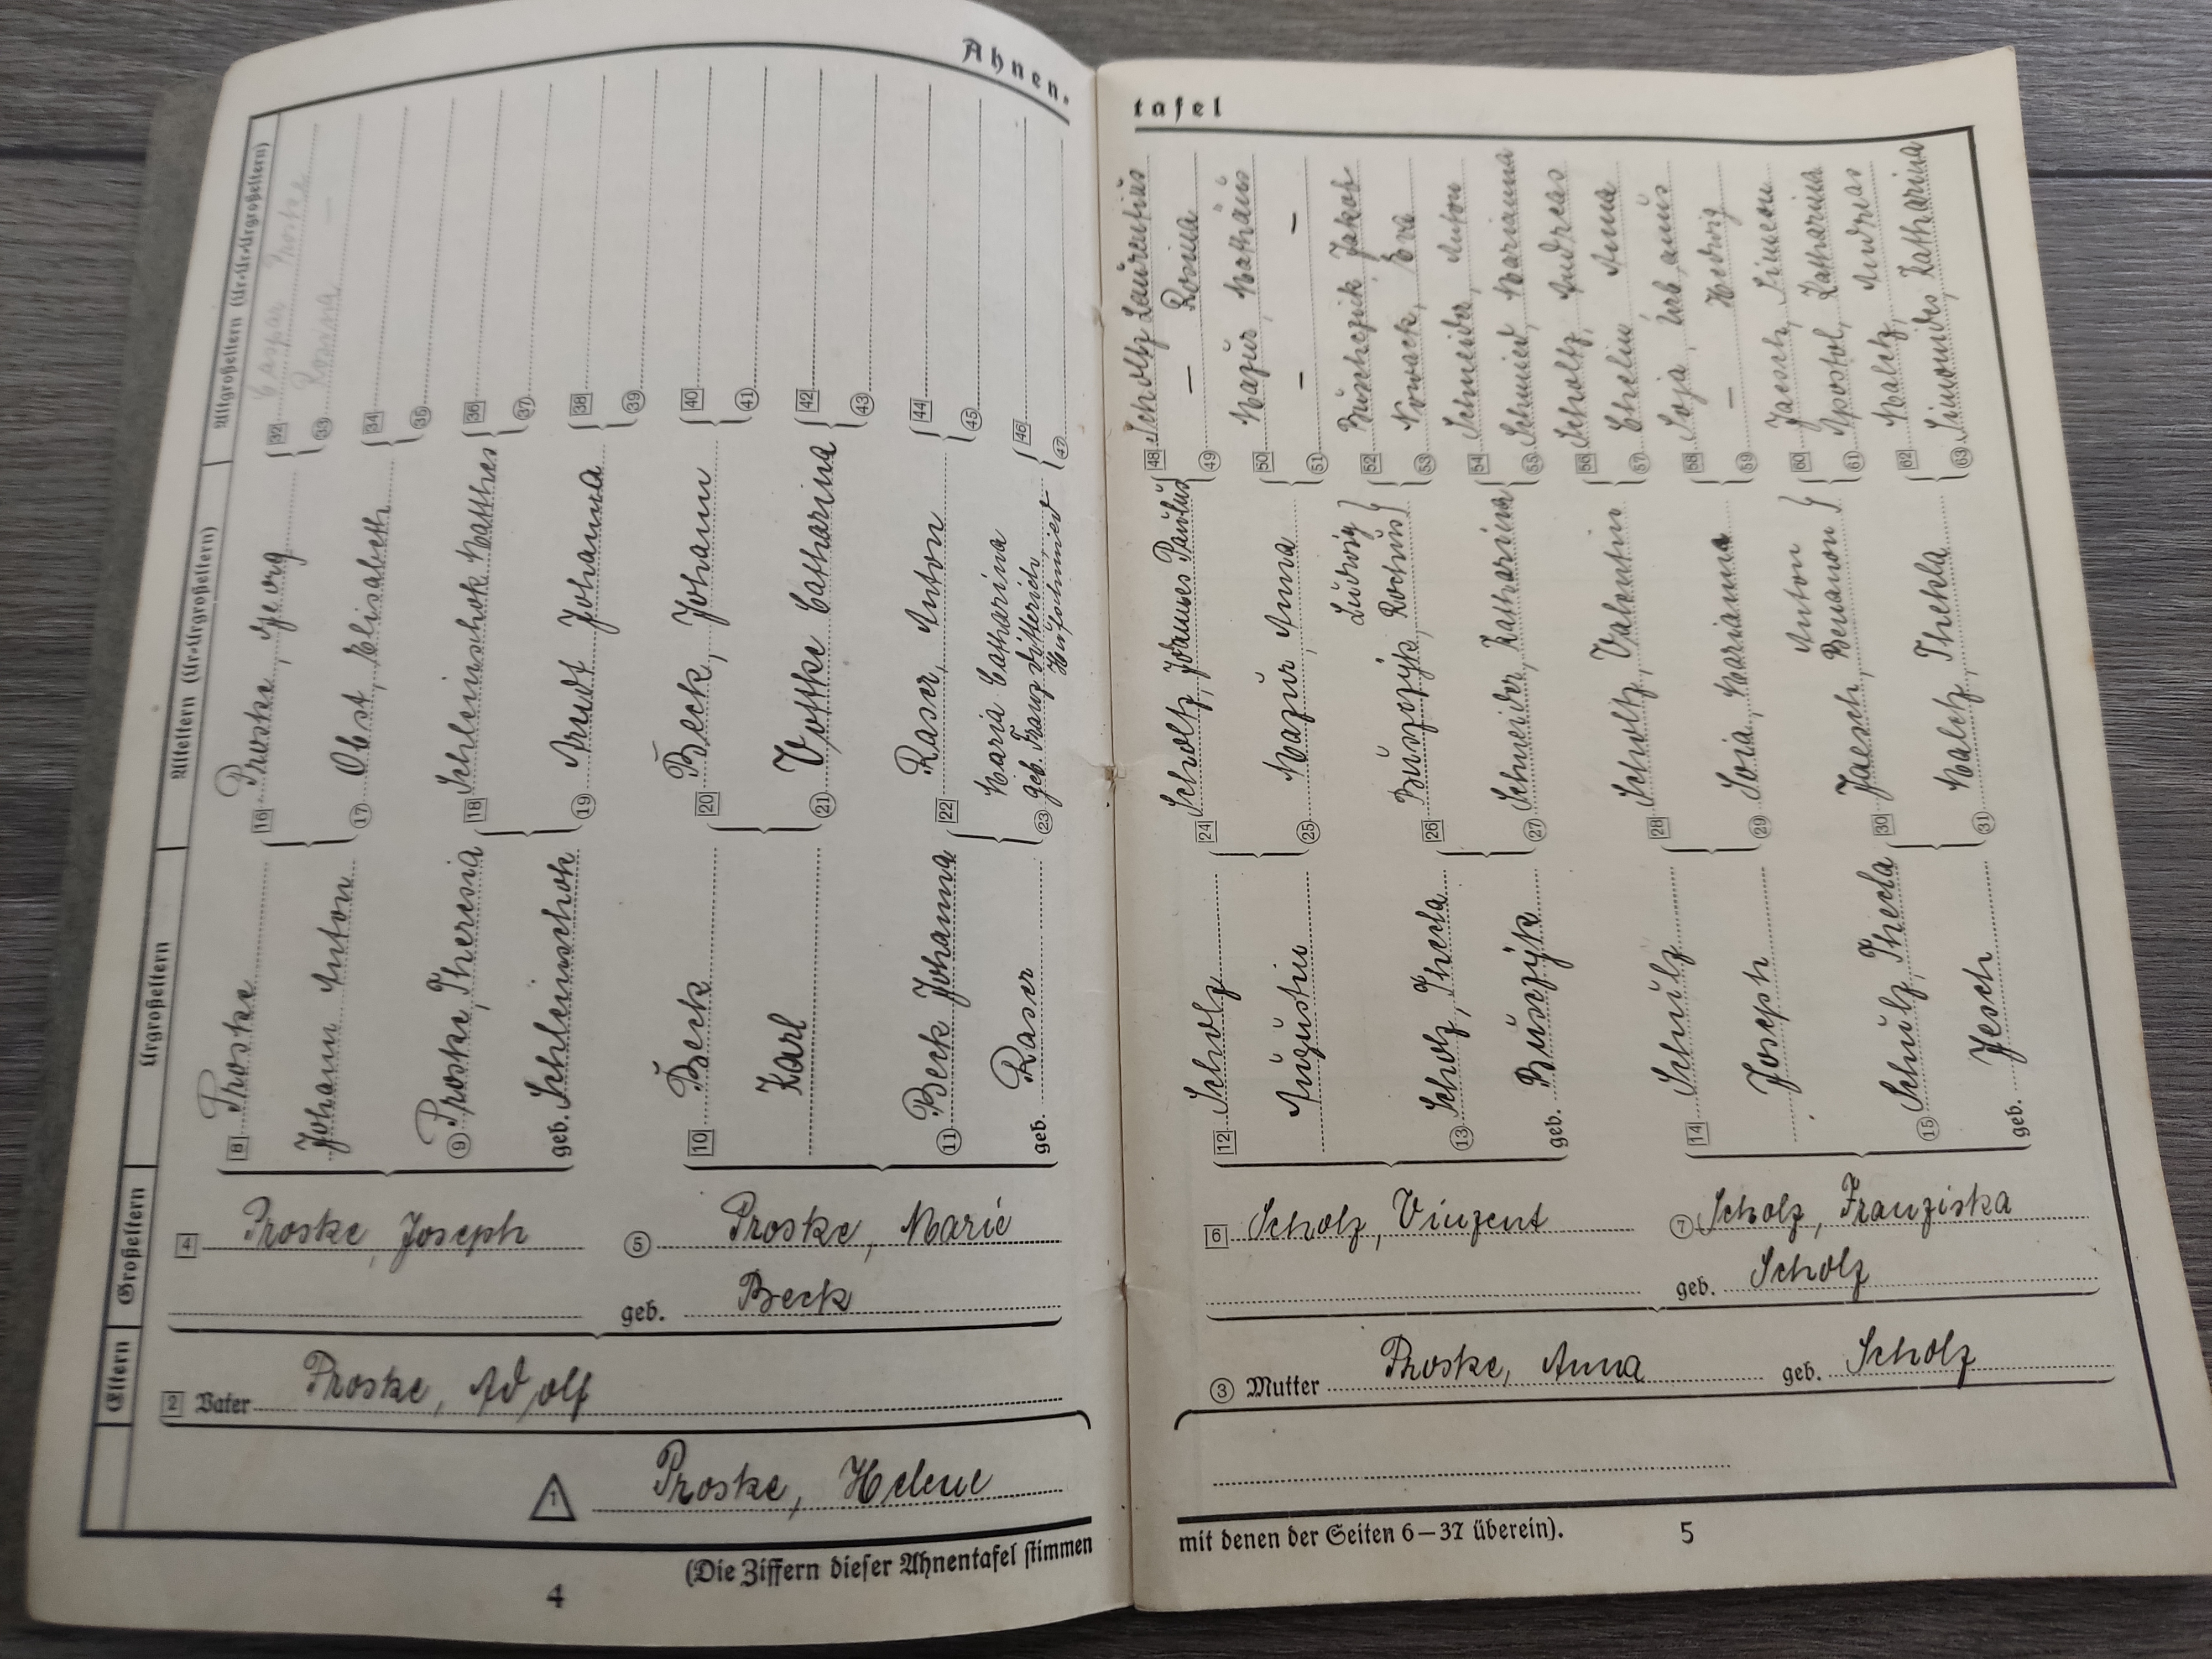 Ahnen-
tafel
Altgroßeltern (Ur-Ur-Urgroßeltern)
32 Caspar Proske
33 Rosina —
34
35
36
37
38
39
40
41
42
43
44
45
46
47
48 Scholtz Laurentius
49 — Rosina
50 Mazur, Mathäus
51 — —
52 Buschczik, Jakob
53 Nowack, Eva
54 Schneider, Anton
55 Schmiel, Marianna
56 Scholtz, Andreas
57 Chelin Anna
58 Soja, Urbanus
59 — Hedwig
60 Jaesch, Simeon
61 Apostel, Katharina
62 Malcz, Andreas
63 Simonides, Katharina
Alteltern (Ur-Urgroßeltern)
16 Proske, Georg
17 Obst, Elisabeth
18 Schleinschok Matthes
19 Arndt Johanna
20 Beck, Johann
21 Vottke Catharina
22 Raser, Anton
Maria Catharina
23 geb. Franz Ditterich,
Hufschmied
24 Scholtz, Johannes Paulus
25 Mazur, Anna
Ludwig
26 Rochus
27 Schneider, Katharina
28 Scholtz, Valentin
29 Soia, Marianna
Anton
30 Jaesch,
31 Malcz, Thekla
Urgroßeltern
8 Proske
Johann Anton
9 Proske, Theresia
geb. Schleinschok
10 Beck
Karl
11 Beck Johanna
geb. Raser
12 Scholz
Augustin
13 Scholz, Thecla
geb. Busczÿk
14 Schulz
Joseph
15 Schulz, Thecla
geb. Jesch
Großeltern
4 Proske, Joseph
5 Proske, Marie
geb. Beck
6 Scholz, Vinzent
7 Scholz, Franziska
geb. Scholz
Eltern
2 Vater Proske, Adolf
3 Mutter Proske, Anna geb. Scholz
1 Proske, Helene
(Die Ziffern dieser Ahnentafel stimmen
mit denen der Seiten 6–37 überein).
4
5